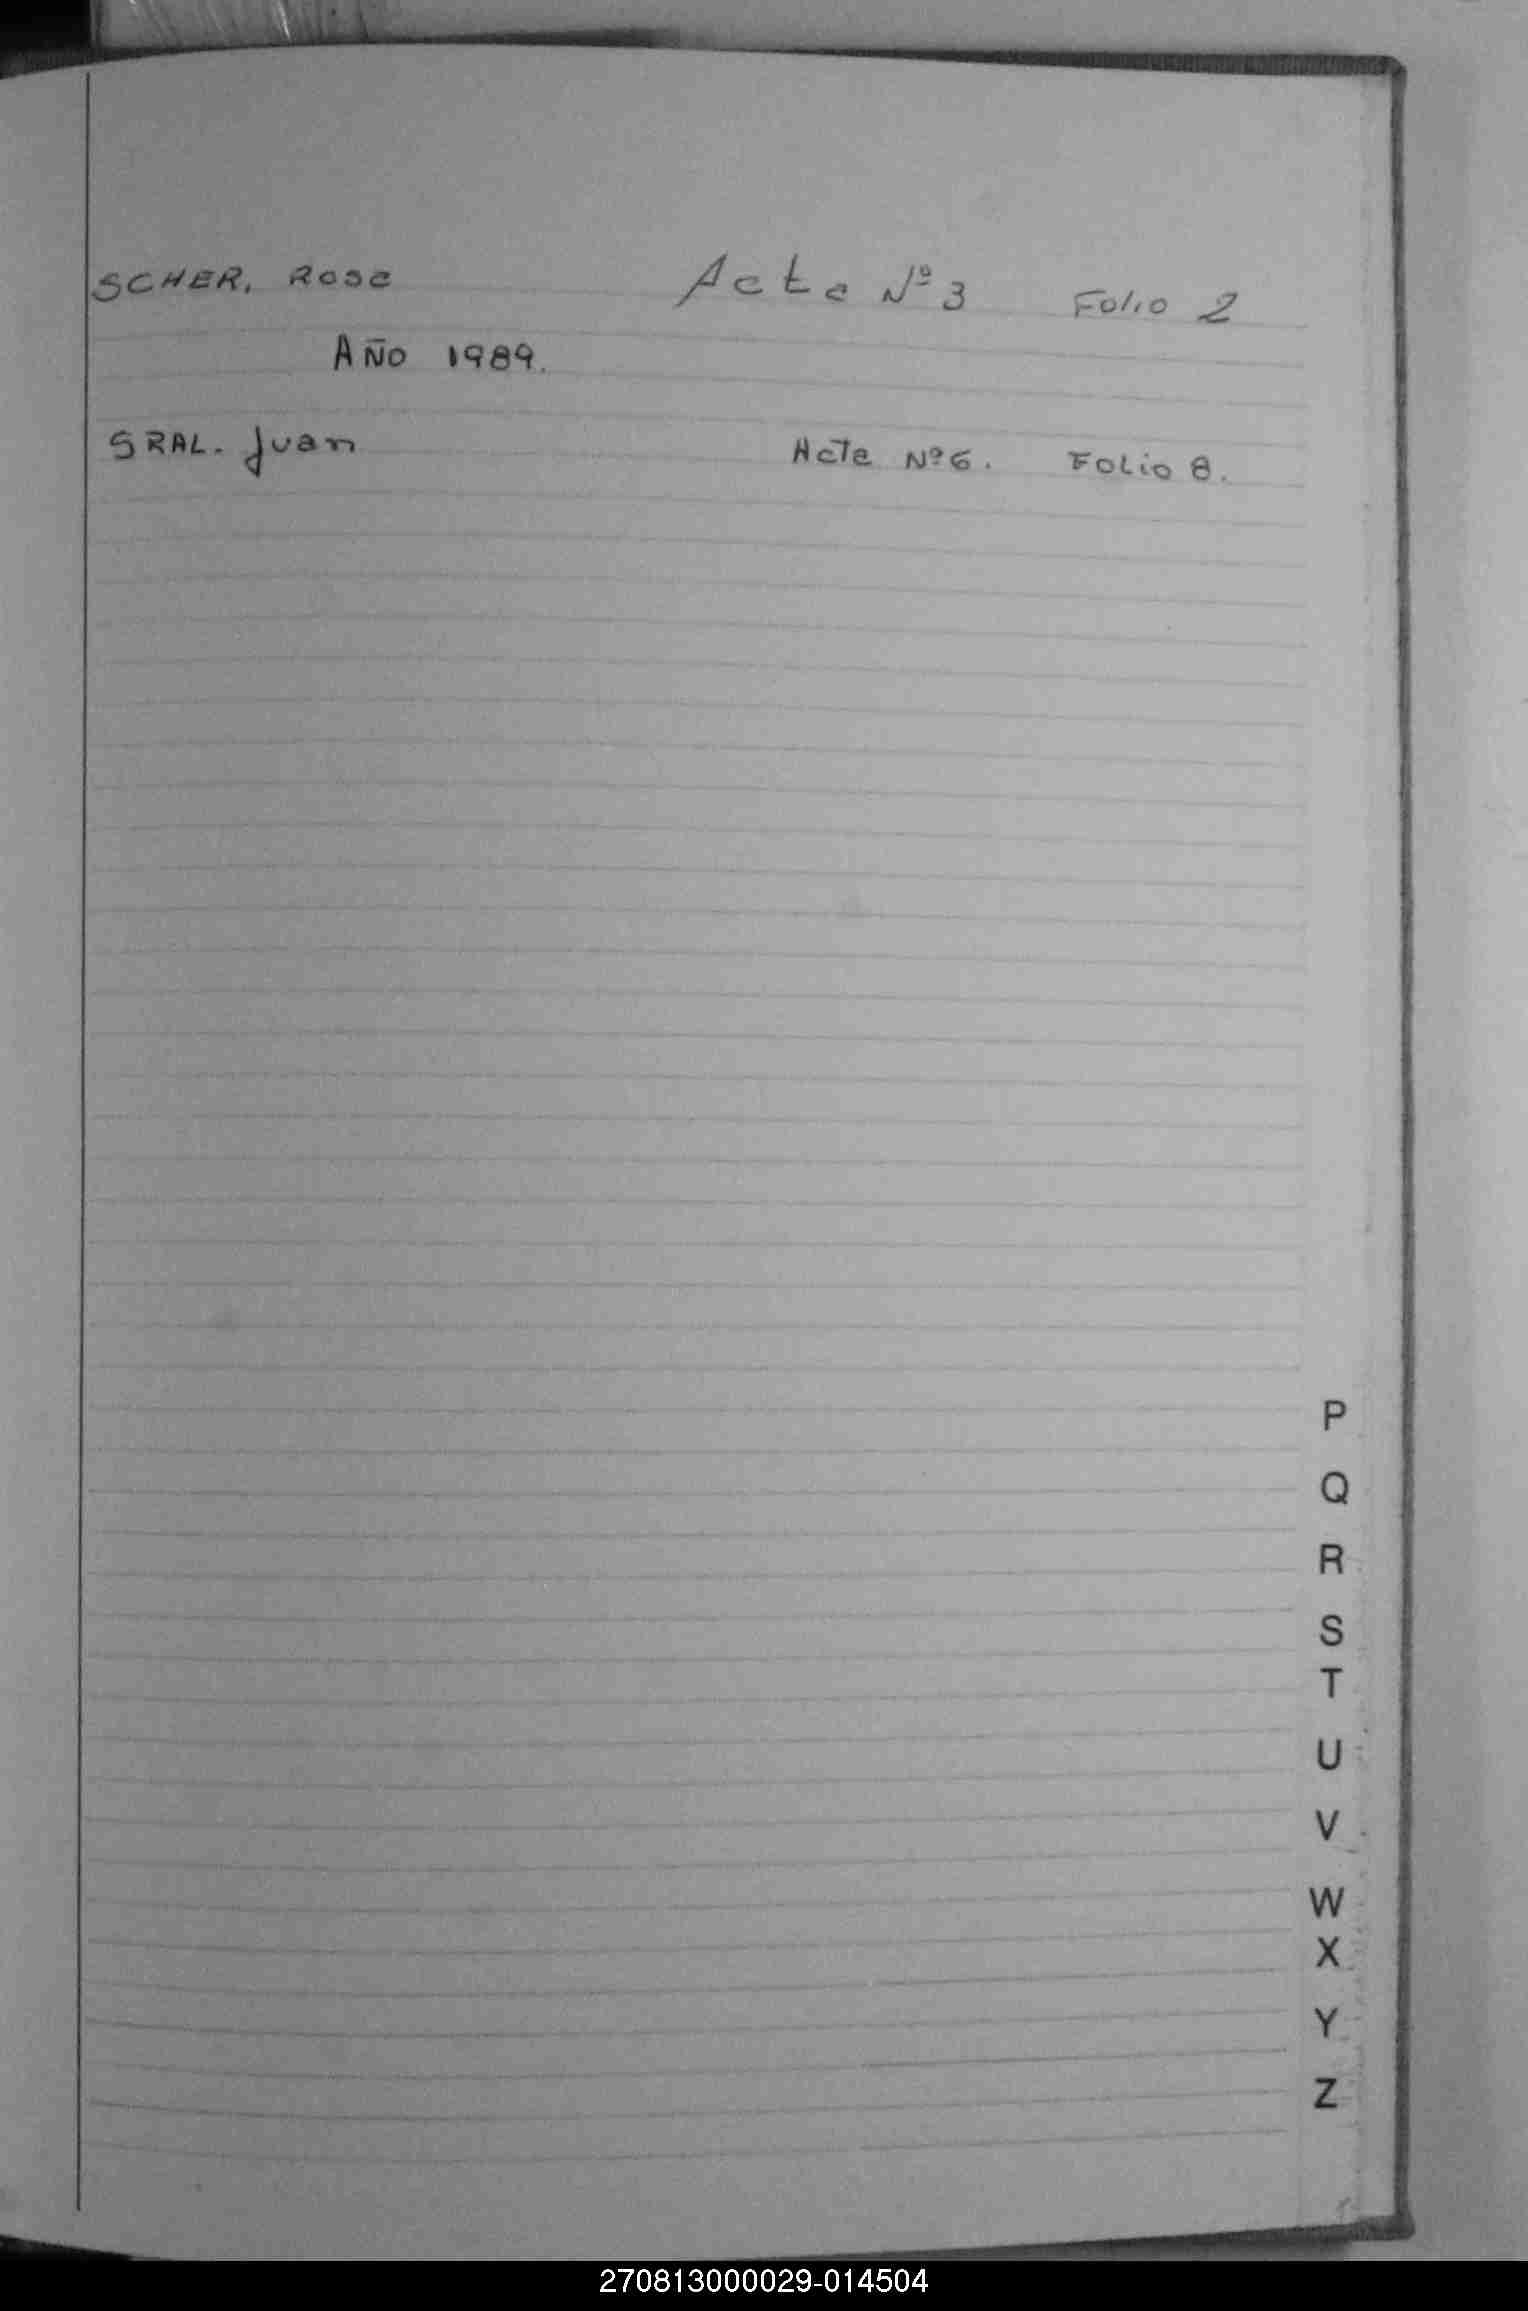 SCHER, Rosa Acta Nº 3 Folio 2
AÑO 1989.
SRAL. Juan Acta Nº 6. Folio 8.
P
Q
R
S
T
U
V
W
X
Y
Z
270813000029-014504